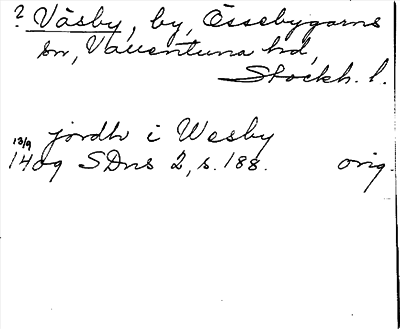 ? Väsby, by, Össebygarns
sn, Vallentuna hd,
Stockh. l.
jordh i Wesby
13/9
1409 SDns 2, s. 188. orig.